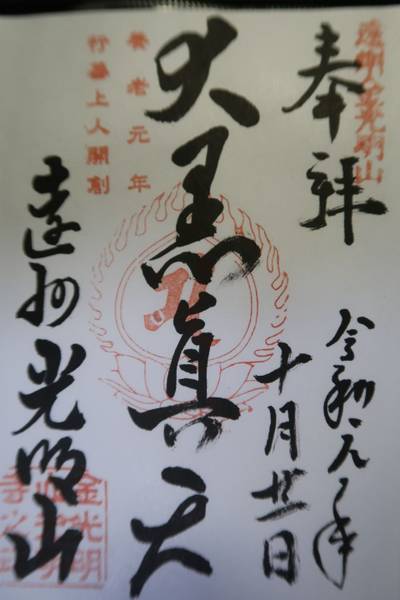 遠州金光明山
奉拝
令和元年
十月廿二日
大黒真天
養老元年
行基上人開創
遠州光明山
金光明
寺之印